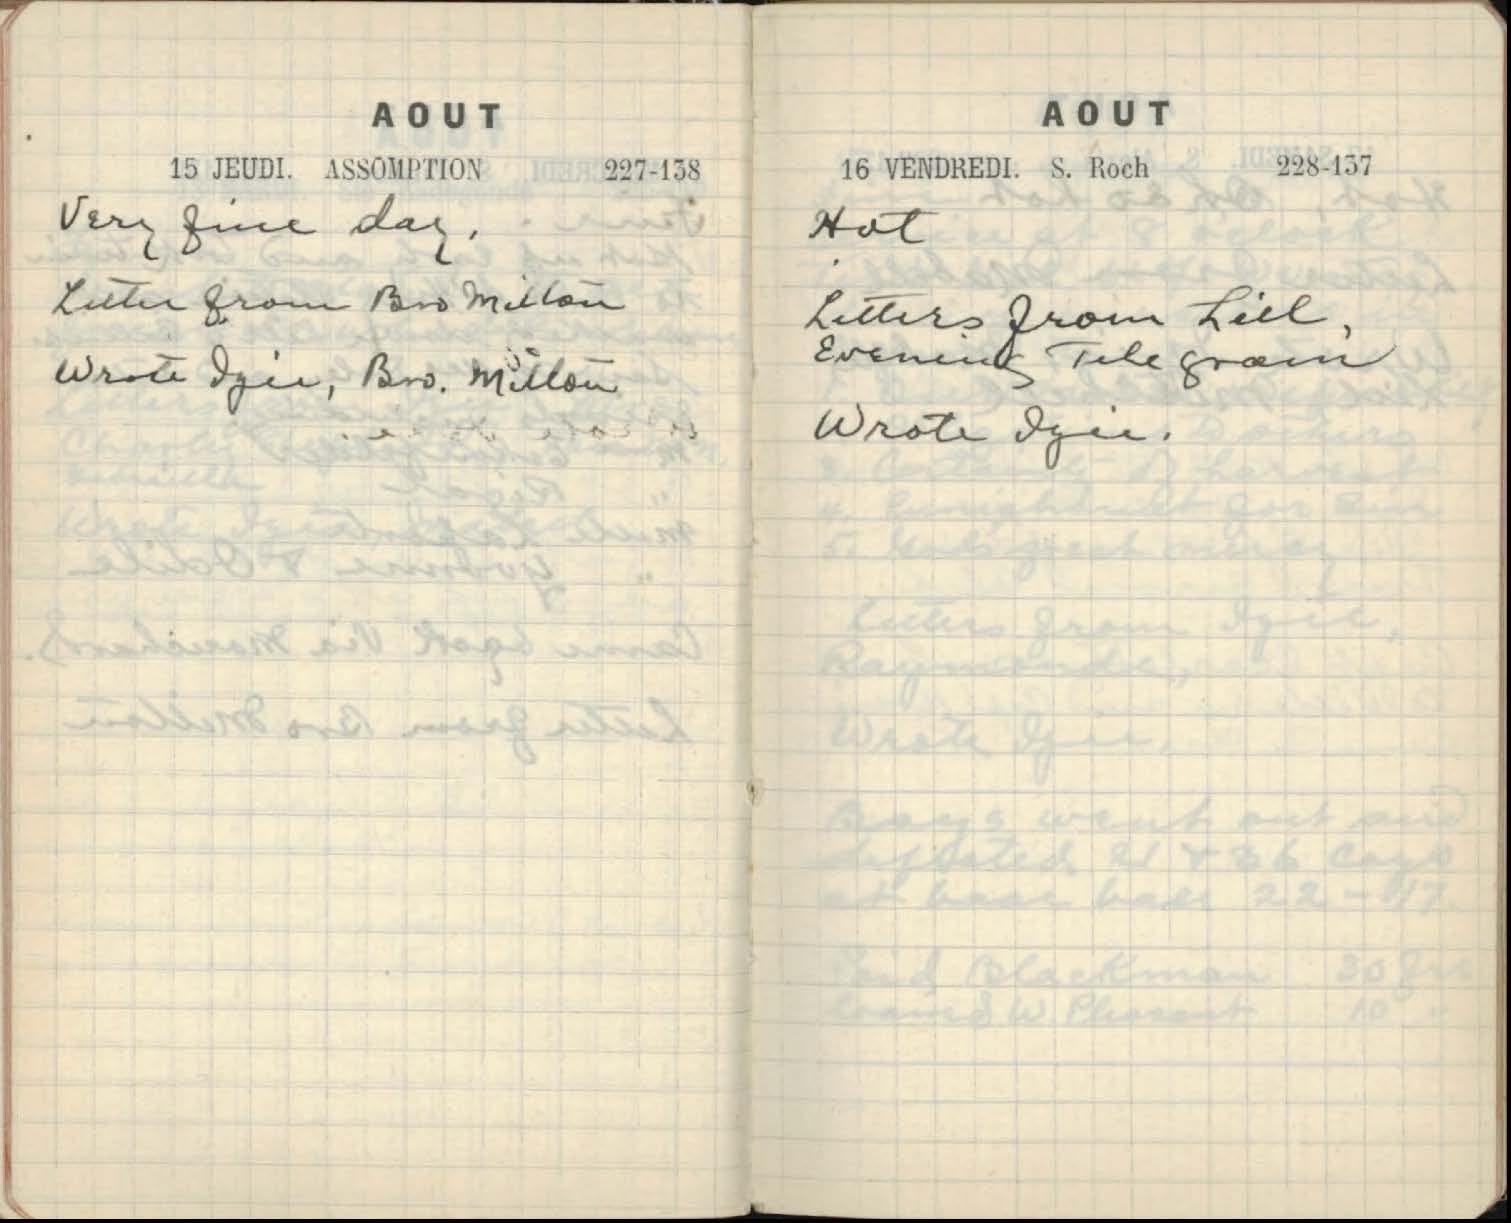 AOUT
15 JEUDI. ASSOMPTION 227-138
Very fine day.
Letter from Bro Milton
Wrote Izie, Bro. Milton
AOUT
16 VENDREDI. S. Roch 228-137
Hot
Letters from Lill,
Evening Telegram
Wrote Izie.